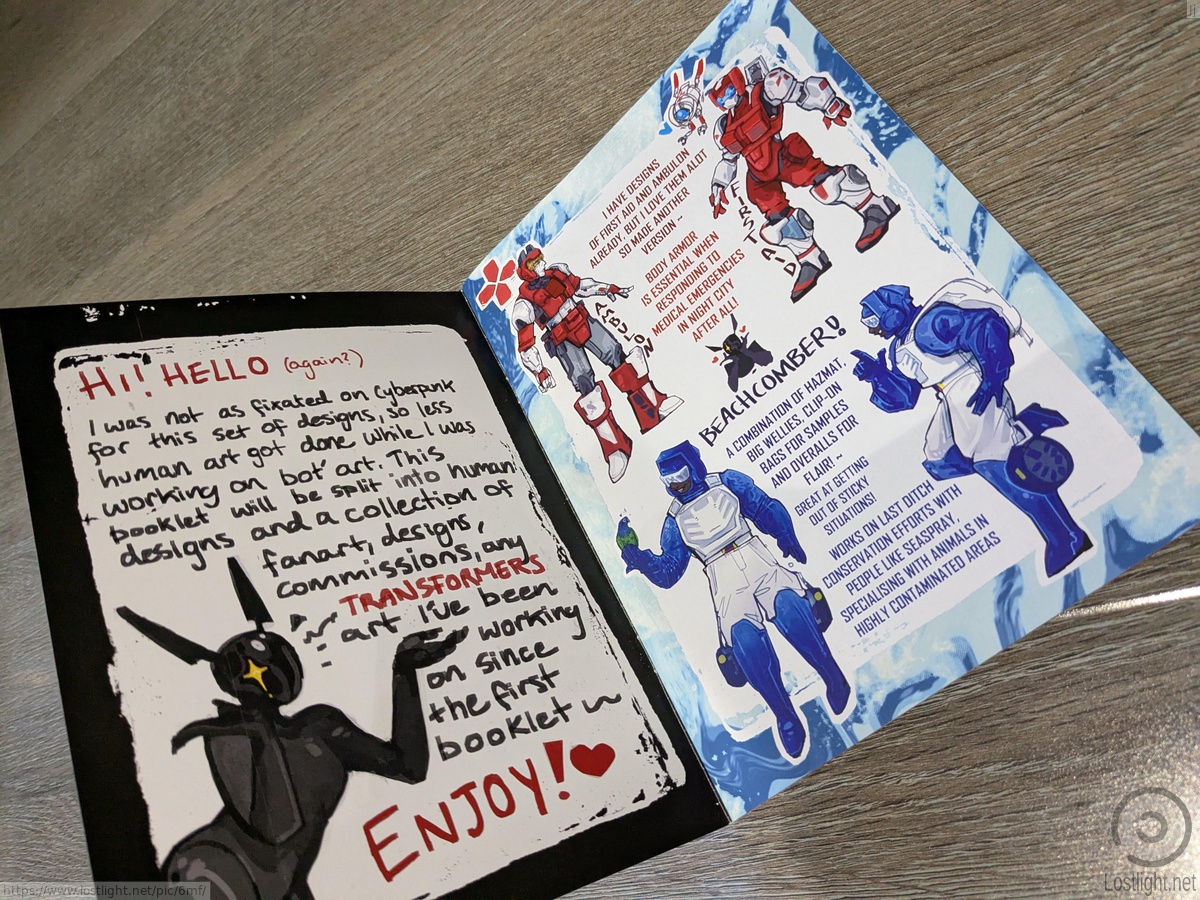 Hi! HELLO (again?)
I was not as fixated on Cyberpunk
for this set of designs, so less
human art got done while I was
working on 'bot' art. This
booklet will be split into human
designs and a collection of
fanart, designs,
commissions, any
TRANSFORMERS
art I've been
working
on since
the first
booklet ~
ENJOY!
I HAVE DESIGNS
OF FIRST AID AND AMBULON
ALREADY, BUT I LOVE THEM ALOT
SO MADE ANOTHER
VERSION ~
BODY ARMOR
IS ESSENTIAL WHEN
RESPONDING TO
MEDICAL EMERGENCIES
IN NIGHT CITY
AFTER ALL!
FIRST AID
AMBULON
BEACHCOMBER!
A COMBINATION OF HAZMAT,
BIG WELLIES, CLIP-ON
BAGS FOR SAMPLES
AND OVERALLS FOR
FLAIR! ~
GREAT AT GETTING
OUT OF STICKY
SITUATIONS!
WORKS ON LAST DITCH
CONSERVATION EFFORTS WITH
PEOPLE LIKE SEASPRAY,
SPECIALISING WITH ANIMALS IN
HIGHLY CONTAMINATED AREAS
https://www.lostlight.net/pic/6mf/
Lostlight.net